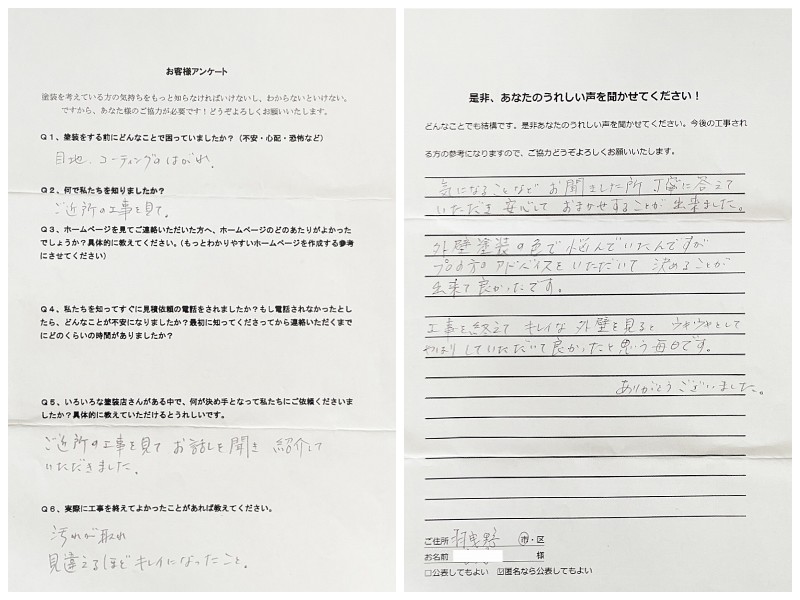 お客様アンケート
塗装を考えている方の気持ちをもっと知らなければいけないし、わからないといけない。
ですから、あなた様のご協力が必要です！どうぞよろしくお願いいたします。
Q１、塗装をする前にどんなことで困っていましたか？（不安・心配・恐怖など）
目地、コーティングのはがれ。
Q２、何で私たちを知りましたか？
ご近所の工事を見て。
Q３、ホームページを見てご連絡いただいた方へ、ホームページのどのあたりがよかった
でしょうか？具体的に教えてください。（もっとわかりやすいホームページを作成する参考
にさせてください）
Q４、私たちを知ってすぐに見積依頼の電話をされましたか？もし電話されなかったとし
たら、どんなことが不安になりましたか？最初に知ってくださってから連絡いただくまで
にどのくらいの時間がありましたか？
Q５、いろいろな塗装店さんがある中で、何が決め手となって私たちにご依頼くださいま
したか？具体的に教えていただけるとうれしいです。
ご近所の工事を見て お話しを聞き 紹介して
いただきました。
Q６、実際に工事を終えてよかったことがあれば教えてください。
汚れが取れ
見違えるほどキレイになったこと。
是非、あなたのうれしい声を聞かせてください！
どんなことでも結構です。是非あなたのうれしい声を聞かせてください。今後の工事され
る方の参考になりますので、ご協力どうぞよろしくお願いいたします。
気になることなど お聞きした所 丁寧に答えて
いただき 安心して おまかせすることが 出来ました。
外壁塗装の色で悩んでいたんですが
プロの方のアドバイスをいただいて 決めることが
出来て良かったです。
工事を終えて キレイな 外壁を見ると ウキウキとして
やはり していただいて良かったと思う毎日です。
ありがとうございました。
ご住所 羽曳野 市・区
お名前 様
□公表してもよい ☑匿名なら公表してもよい